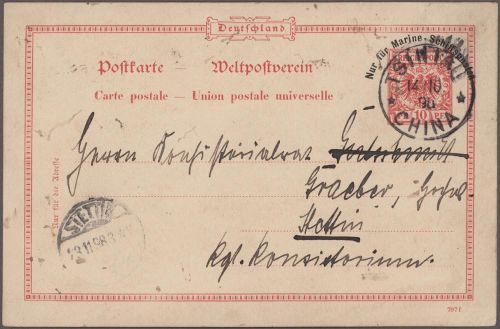 Deutschland
Postkarte — Weltpostverein
Carte postale — Union postale universelle
Nur für Marine-Schiffsbriefe
TSINTAU
14/10
98
CHINA
10
Nur für die Adresse
Herrn Konsistorialrat
Graeber, Hochw.
Stettin
Kgl. Konsistorium.
STETTIN
13.11.98.
797f